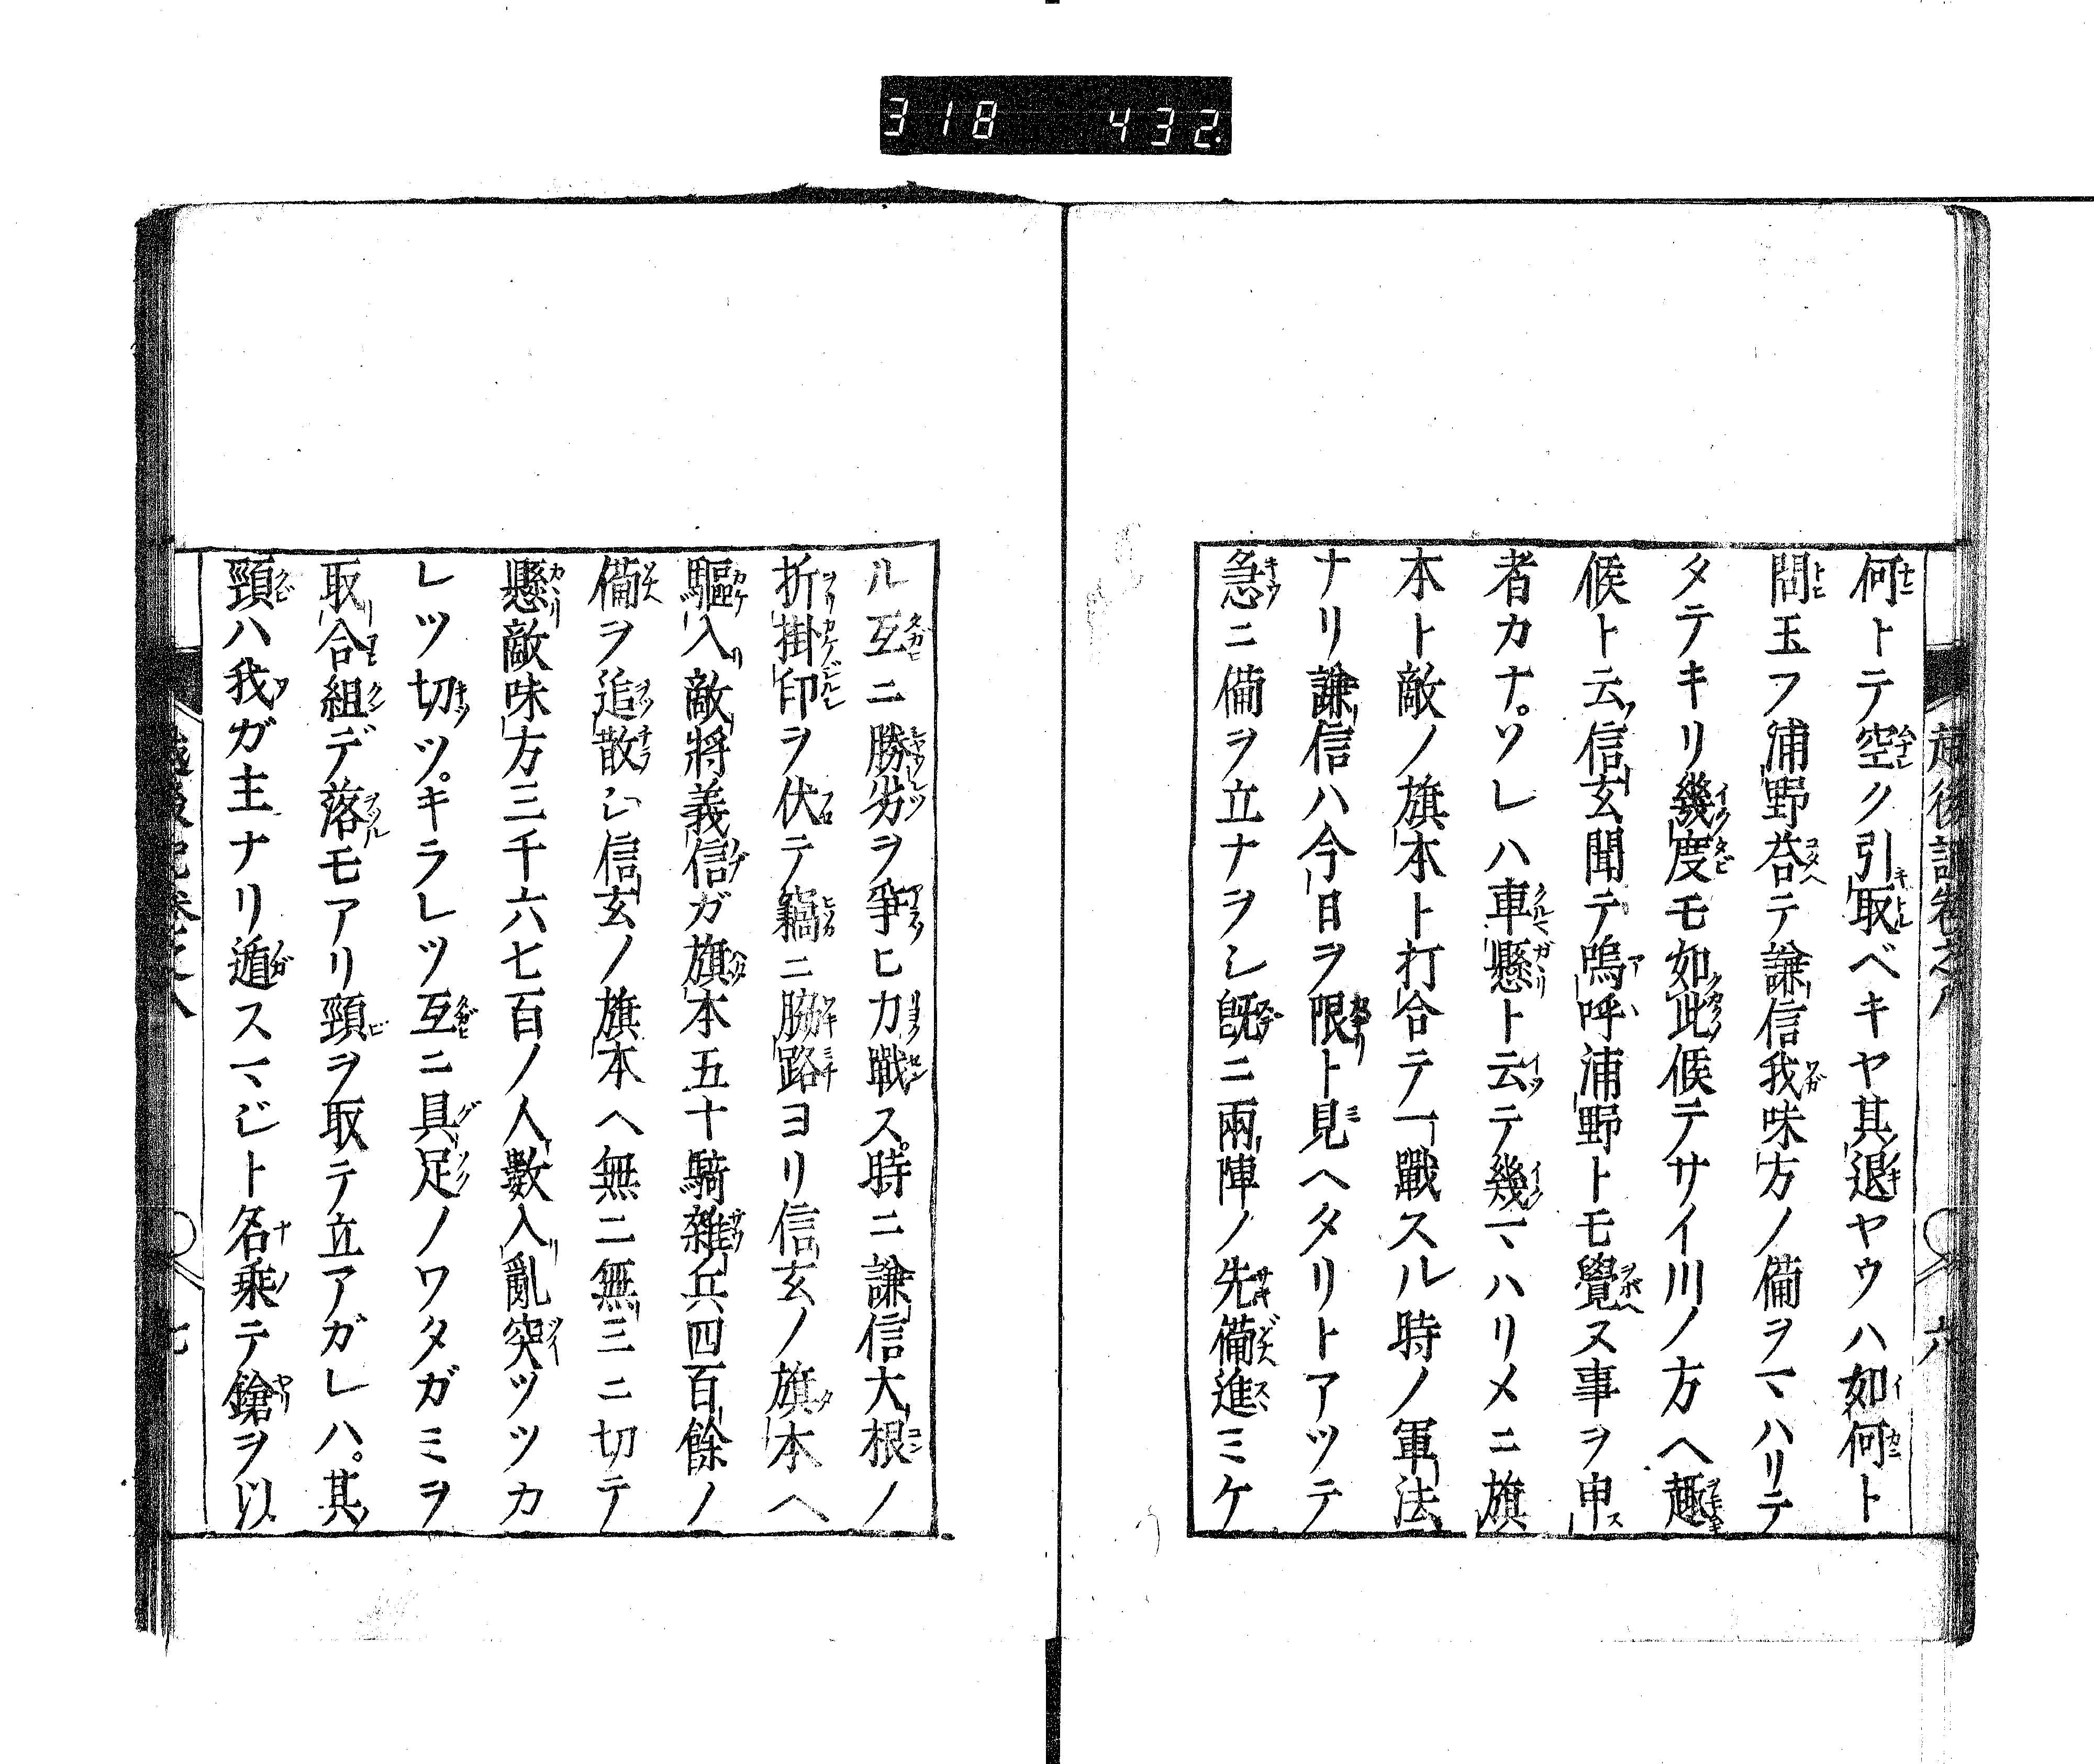 318 432
何トテ空ク引取ベキヤ其退ヤウハ如何ト
問玉フ浦野荅テ謙信我味方ノ備ヲマハリテ
タテキリ幾度モ如此候テサイ川ノ方ヘ趣
候ト云信玄聞テ嗚呼浦野トモ覺ス事ヲ申
者カナ。ソレハ車懸ト云テ幾マハリメニ旗
本ト敵ノ旗本ト打合テ一戰スル時ノ軍法
ナリ謙信ハ今日ヲ限ト見ヘタリトアツテ
急ニ備ヲ立ナヲシ既ニ兩陣ノ先備進ミケ
ル互ニ勝劣ヲ爭ヒ力戰ス。時ニ謙信大根ノ
折掛印ヲ伏テ竊ニ脇路ヨリ信玄ノ旗本ヘ
驅入敵將義信ガ旗本五十騎雜兵四百餘ノ
備ヲ追散シ信玄ノ旗本ヘ無二無三ニ切テ
懸敵味方三千六七百ノ人數入亂突ツツカ
レツ切ツ。キラレツ互ニ具足ノワタガミヲ
取合組デ落モアリ頸ヲ取テ立アガレハ。其
頸ハ我ガ主ナリ遁スマジト名乘テ鎗ヲ以